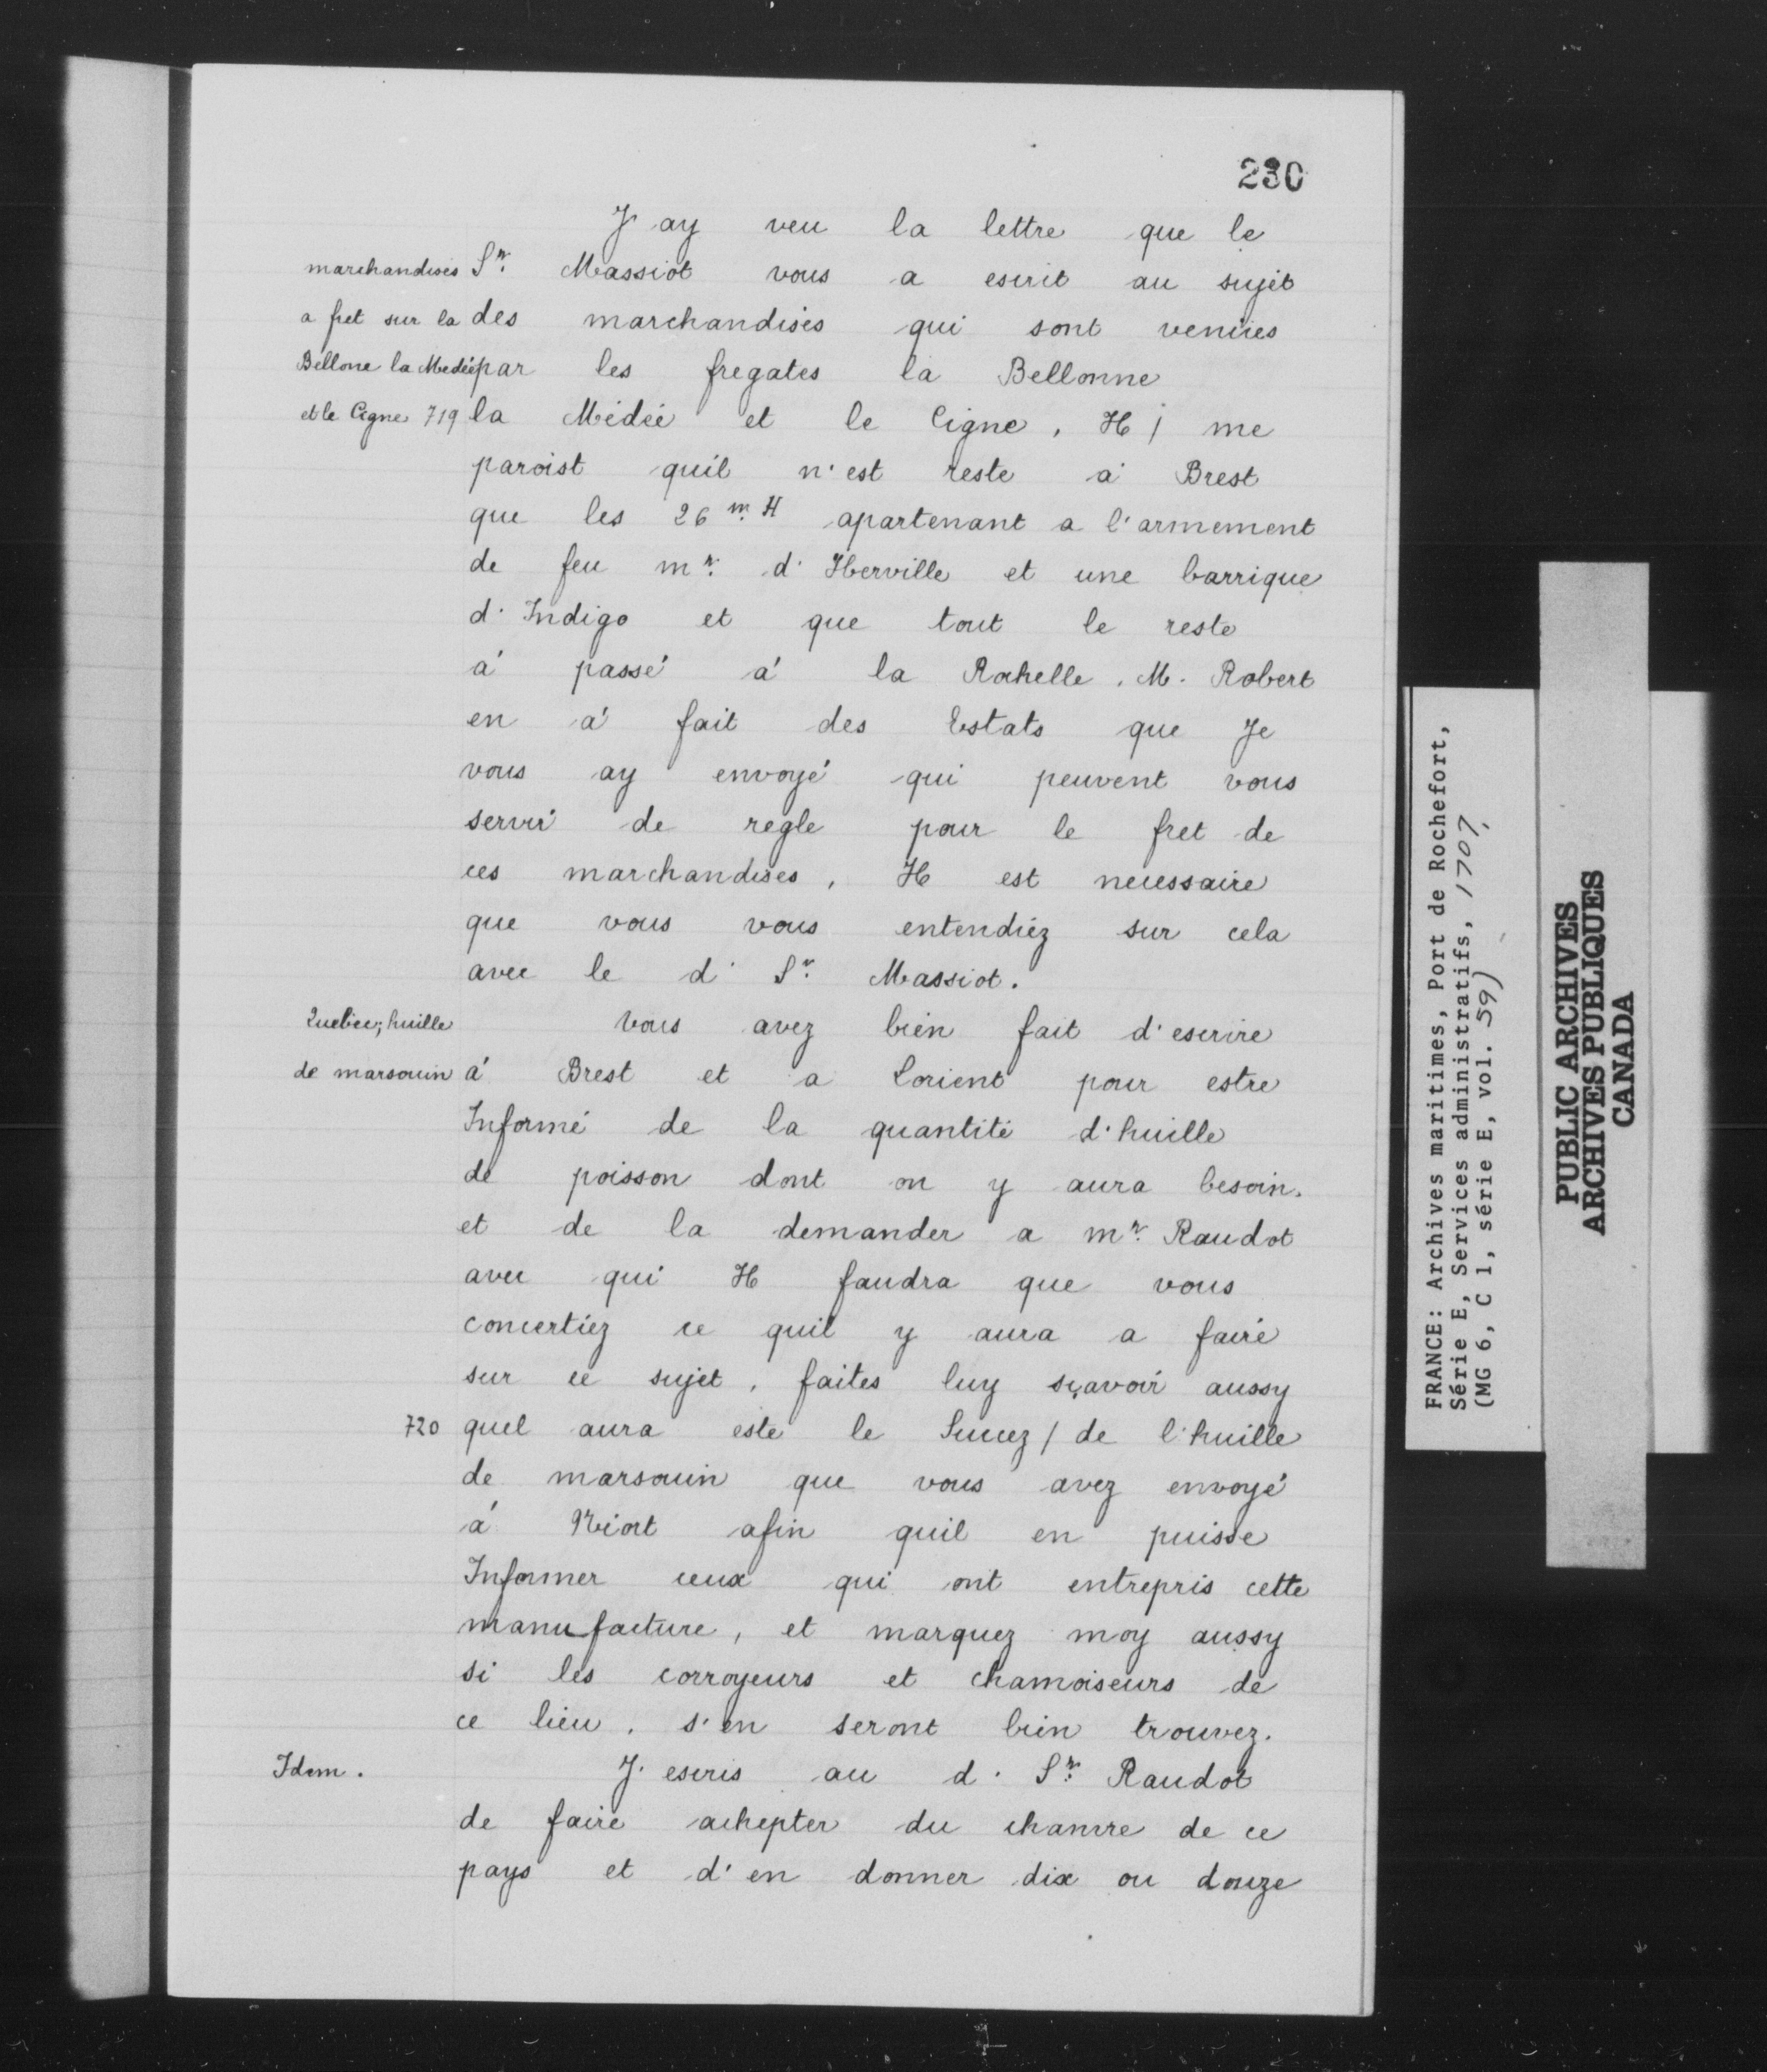 230
J ay veu la lettre que le
marchandises Sr. Massiot vous a escrit au sujet
a fret sur la des marchandises qui sont venües
Bellone la Medée par les fregates la Bellonne
et le Cigne 719 la Médée et le Cigne, Il / me
paroist quil n'est reste à Brest
que les 26 m. ₶ apartenant a l'armement
de feu mr. d'Iberville et une barrique
d'Indigo et que tout le reste
à passé à la Rochelle. M. Robert
en à fait des Estats que Je
vous ay envoyé qui peuvent vous
servir de regle pour le fret de
ces marchandises, Il est necessaire
que vous vous entendiéz sur cela
avec le d. Sr. Massiot.
Quebec; huille Vous avez bien fait d'escrire
de marsouin à Brest et a Lorient pour estre
Informé de la quantité d'huille
de poisson dont on y aura besoin.
et de la demander a mr. Raudot
avec qui Il faudra que vous
concertiéz ce quil y aura a faire
sur ce sujet, faites luy sçavoir aussy
720 quel aura esté le Succez / de l'huille
de marsouin que vous avez envoyé
à Niort afin quil en puisse
Informer ceux qui ont entrepris cette
manufacture, et marquez moy aussy
si les corroyeurs et chamoiseurs de
ce lieu, s'en seront bien trouvez.
Idem. J'escris au d. Sr. Raudot
de faire achepter du chanvre de ce
pays et d'en donner dix ou douze
FRANCE: Archives maritimes, Port de Rochefort,
Série E, Services administratifs, 1707,
(MG 6, C 1, série E, vol. 59)
PUBLIC ARCHIVES
ARCHIVES PUBLIQUES
CANADA